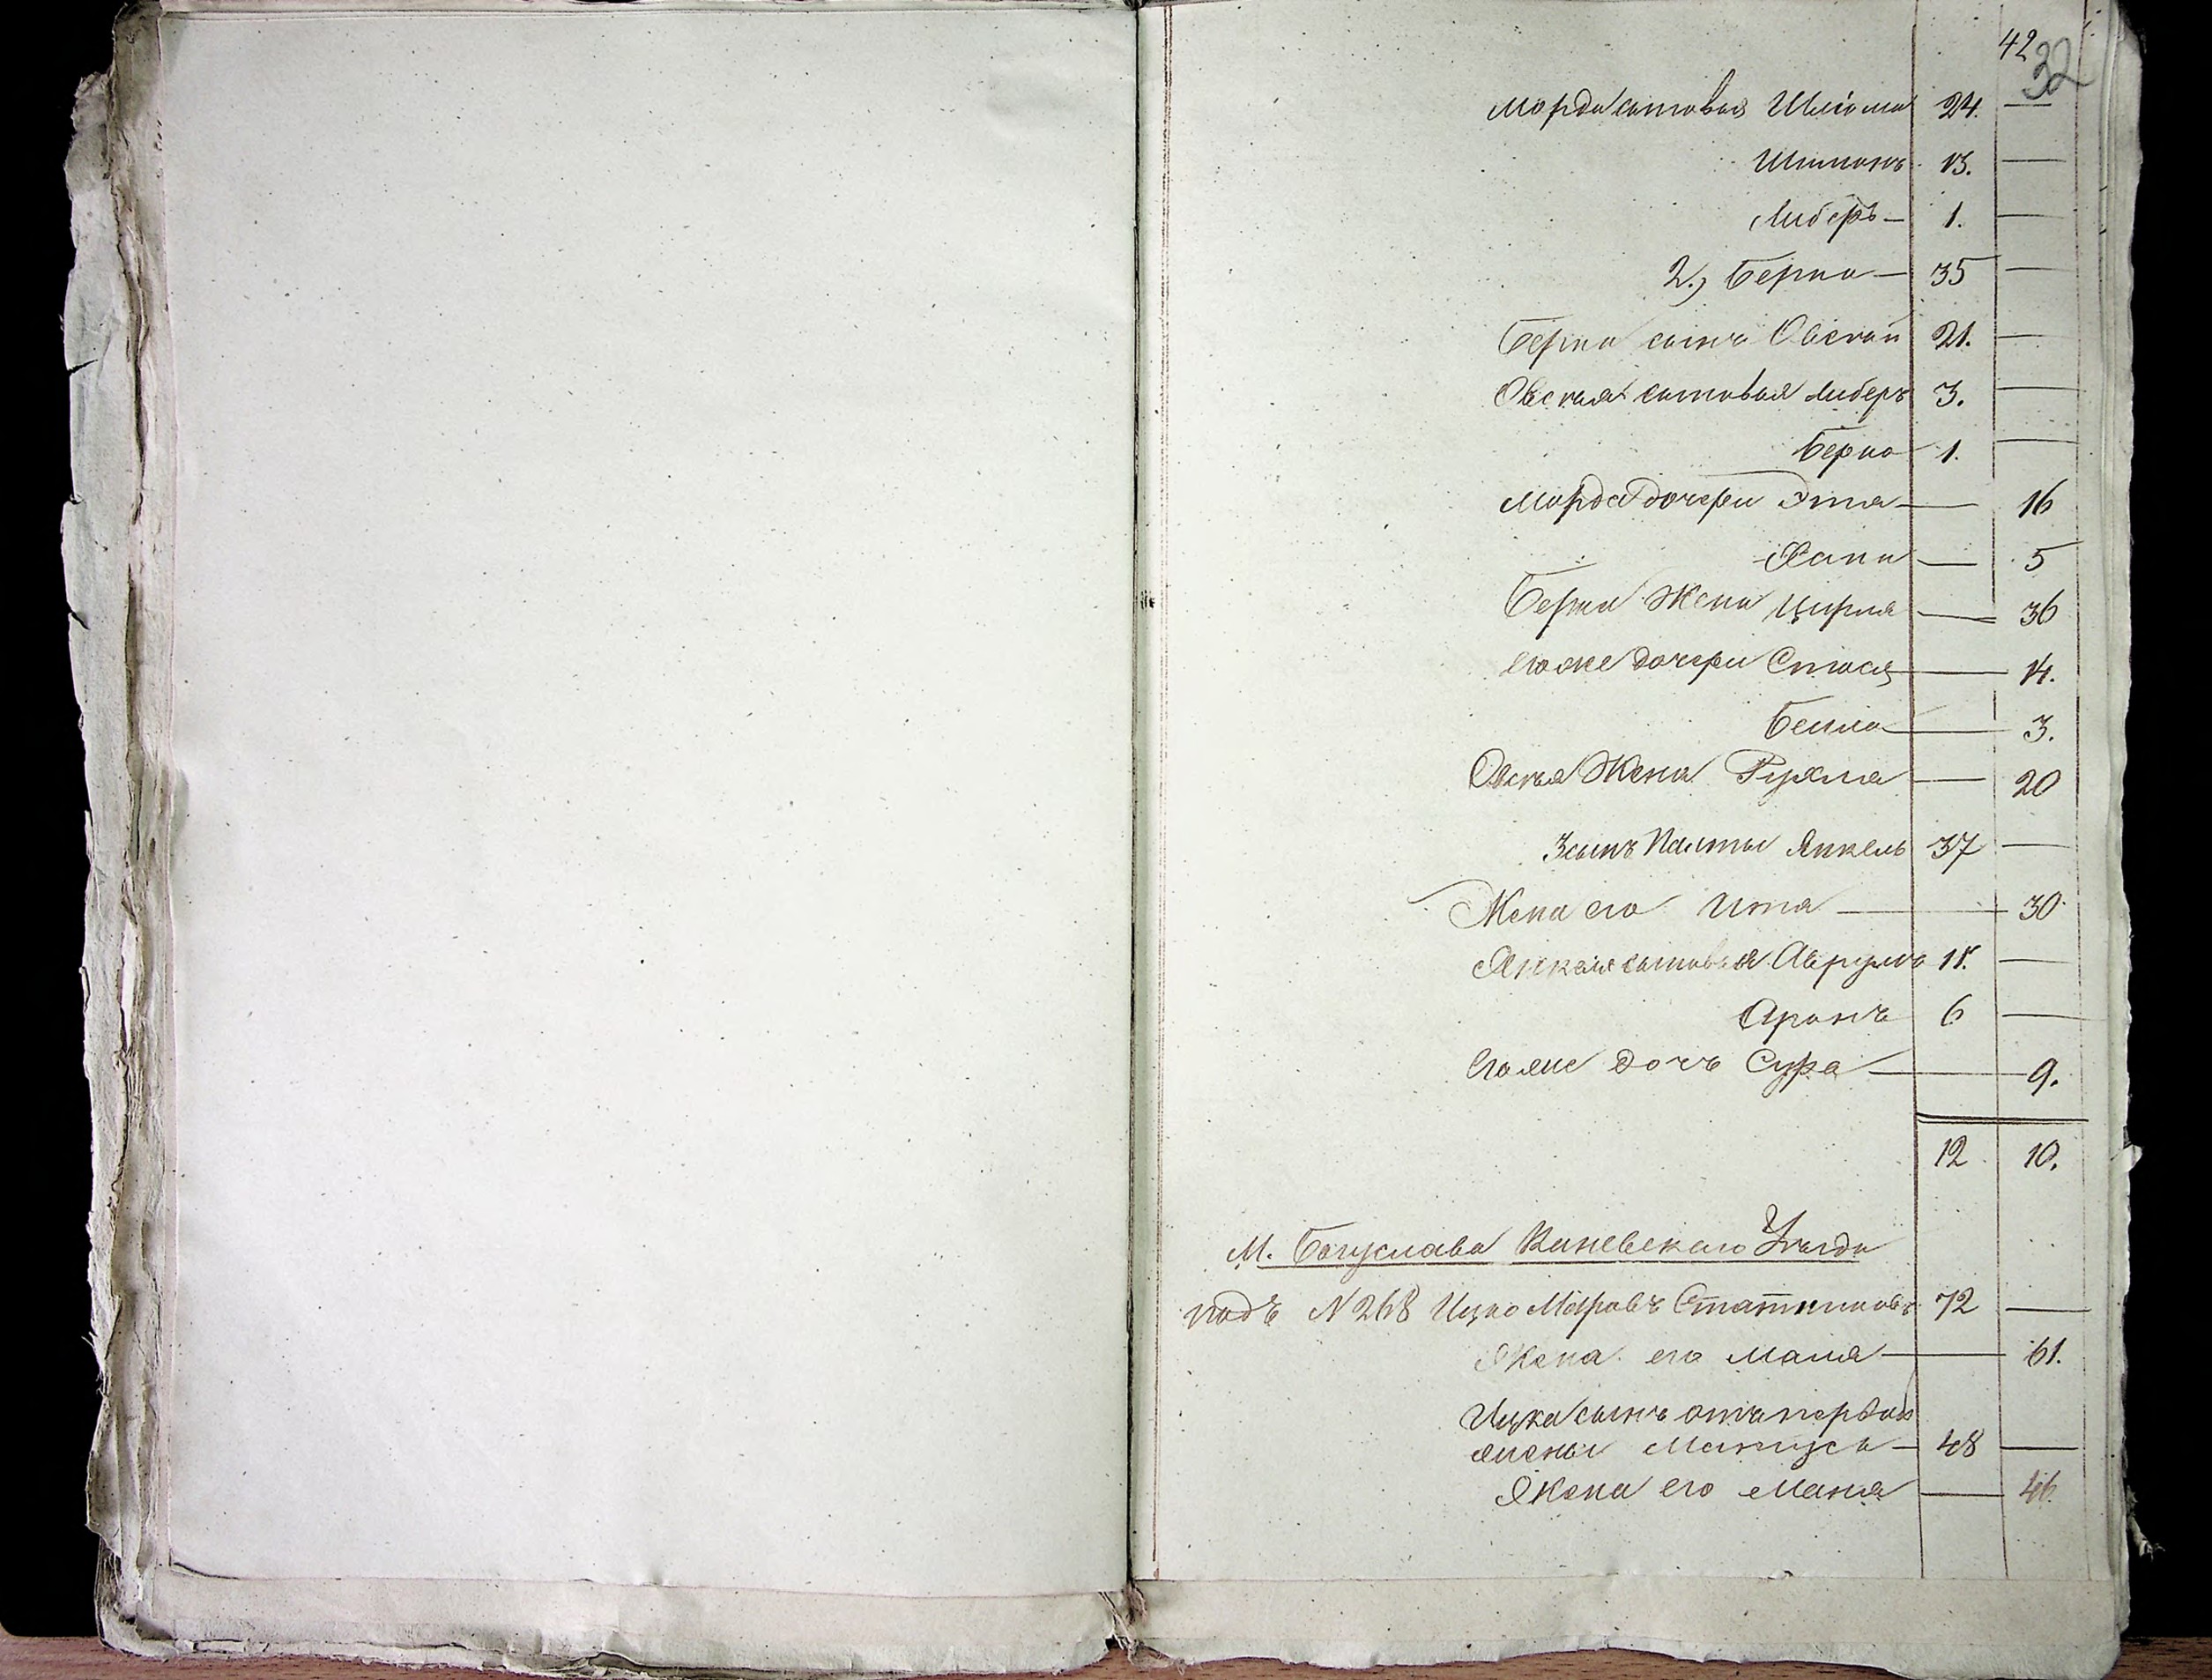 42
32
Морда сыновья Шлiома 24. —
Шимонъ 13. —
Либеръ — 1. —
2, Берко — 35 —
Берка сынъ Овсей 21. —
Овсея сыновья Либеръ 3. —
Берко 1. —
Морда дочери Эта — 16
Хана — 5
Берка Жена Цирля — 36
Его же дочери Стися — 14.
Бейла — 3.
Овсея Жена Рухля — 20
3 сынъ Янкель 37 —
Жена его Ита — 30
Янкеля сыновья Аврумъ 11. —
Аронъ 6 —
Его же дочь Сура — 9.
12 10.
М. Богуслава Каневскаго Уѣзда
подъ N 268 Ицко 72 —
Жена его Маля — 61.
Ицка сынъ отъ первой
жены 48 —
Жена его Маня — 46.